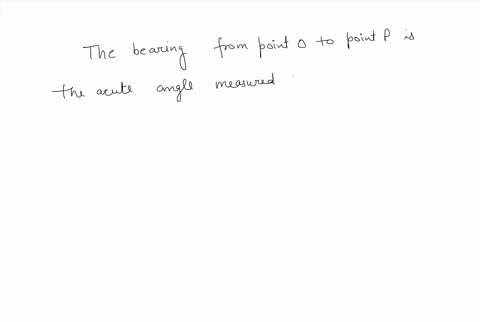 The bearing from point O to point P is
the acute angle measured